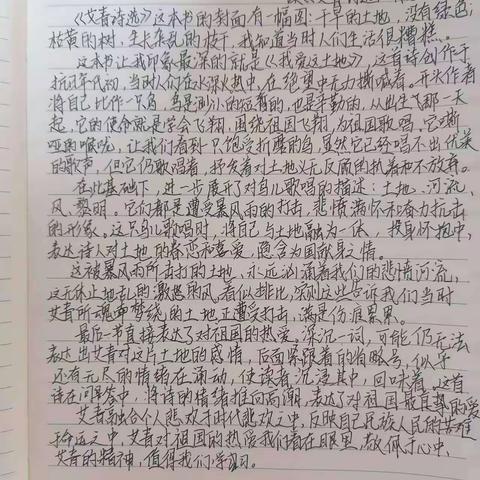 《艾青诗选》这本书的封面有一幅图：干旱的土地，没有绿色；
枯黄的树，生长杂乱的枝干，我知道当时人们生活很糟糕。
这本书让我印象最深的就是《我爱这土地》，这首诗创作于
抗战年代初，当时人们在水深火热中，在绝望中无力撕喊着。开头作者
将自己比作一只鸟，鸟是渺小的短暂的，也是辛勤的，从出生飞那一天
起，它的使命就是学会飞翔，围绕祖国飞翔，为祖国歌唱，它嘶
哑的喉咙，让我们看到一只饱受折磨的鸟，虽然它已经唱不出优美
的歌声，但它仍歌唱着，抒发着对土地义无反顾的执着和不放弃。
在此基础下，进一步展开了对鸟儿歌唱的描述：土地、河流、
风、黎明。它们都是遭受暴风雨的打击，悲愤满怀和奋力抗击
的形象。这只鸟歌唱时，将自己与土地融为一体，投身怀抱中，
表达诗人对土地的眷恋和喜爱，隐含为国献身之情。
这被暴风雨所击打的土地，永远汹涌着我们的悲愤河流，
这无休止地乱的激怒的风，看似排比，实则这些告诉我们当时
艾青所魂牵梦绕的土地正遭受打击，满是伤痕累累。
最后一节直接表达了对祖国的热爱，深沉一词，可能仍无法
表达出艾青对这片土地的感情，后面紧跟着的省略号，似乎
还有无尽的情绪在涌动，使读者沉浸其中，回味着。这首
诗在问答中，将诗的情绪推向高潮，表达了对祖国最真挚的爱
艾青融合个人悲欢于时代悲欢之中，反映自己民族人民的苦难
于命运之中，艾青对祖国的热爱我们看在眼里，敬佩于心中，
艾青的精神，值得我们学习。